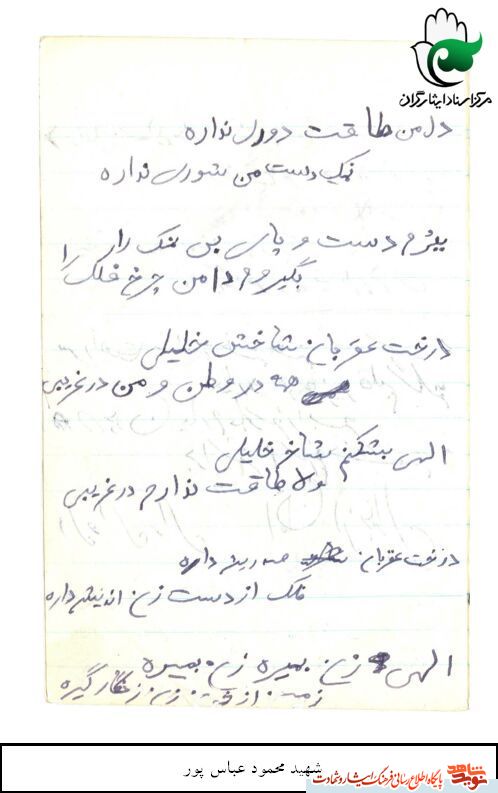 مرکز اسناد ایثارگران
دل من طاقت دوری نداره
نمک دست من شوری نداره
ببرم دست و پای بی نمک را
بگیرم دامن چرخ فلک را
درخت عقربان شاخش خلیلی
همه در وطن و من در غریبی
الهی بشکنم شاخ خلیلی
ولا طاقت ندارم در غریبی
درخت عقربان صد ریشه داره
فلک از دست زن اندیشه داره
الهی زن بمیره زن بمیره
زمین از زن زنگار گیره
شهید محمود عباس پور
نوید شاهد
پایگاه اطلاع رسانی فرهنگ ایثار و شهادت